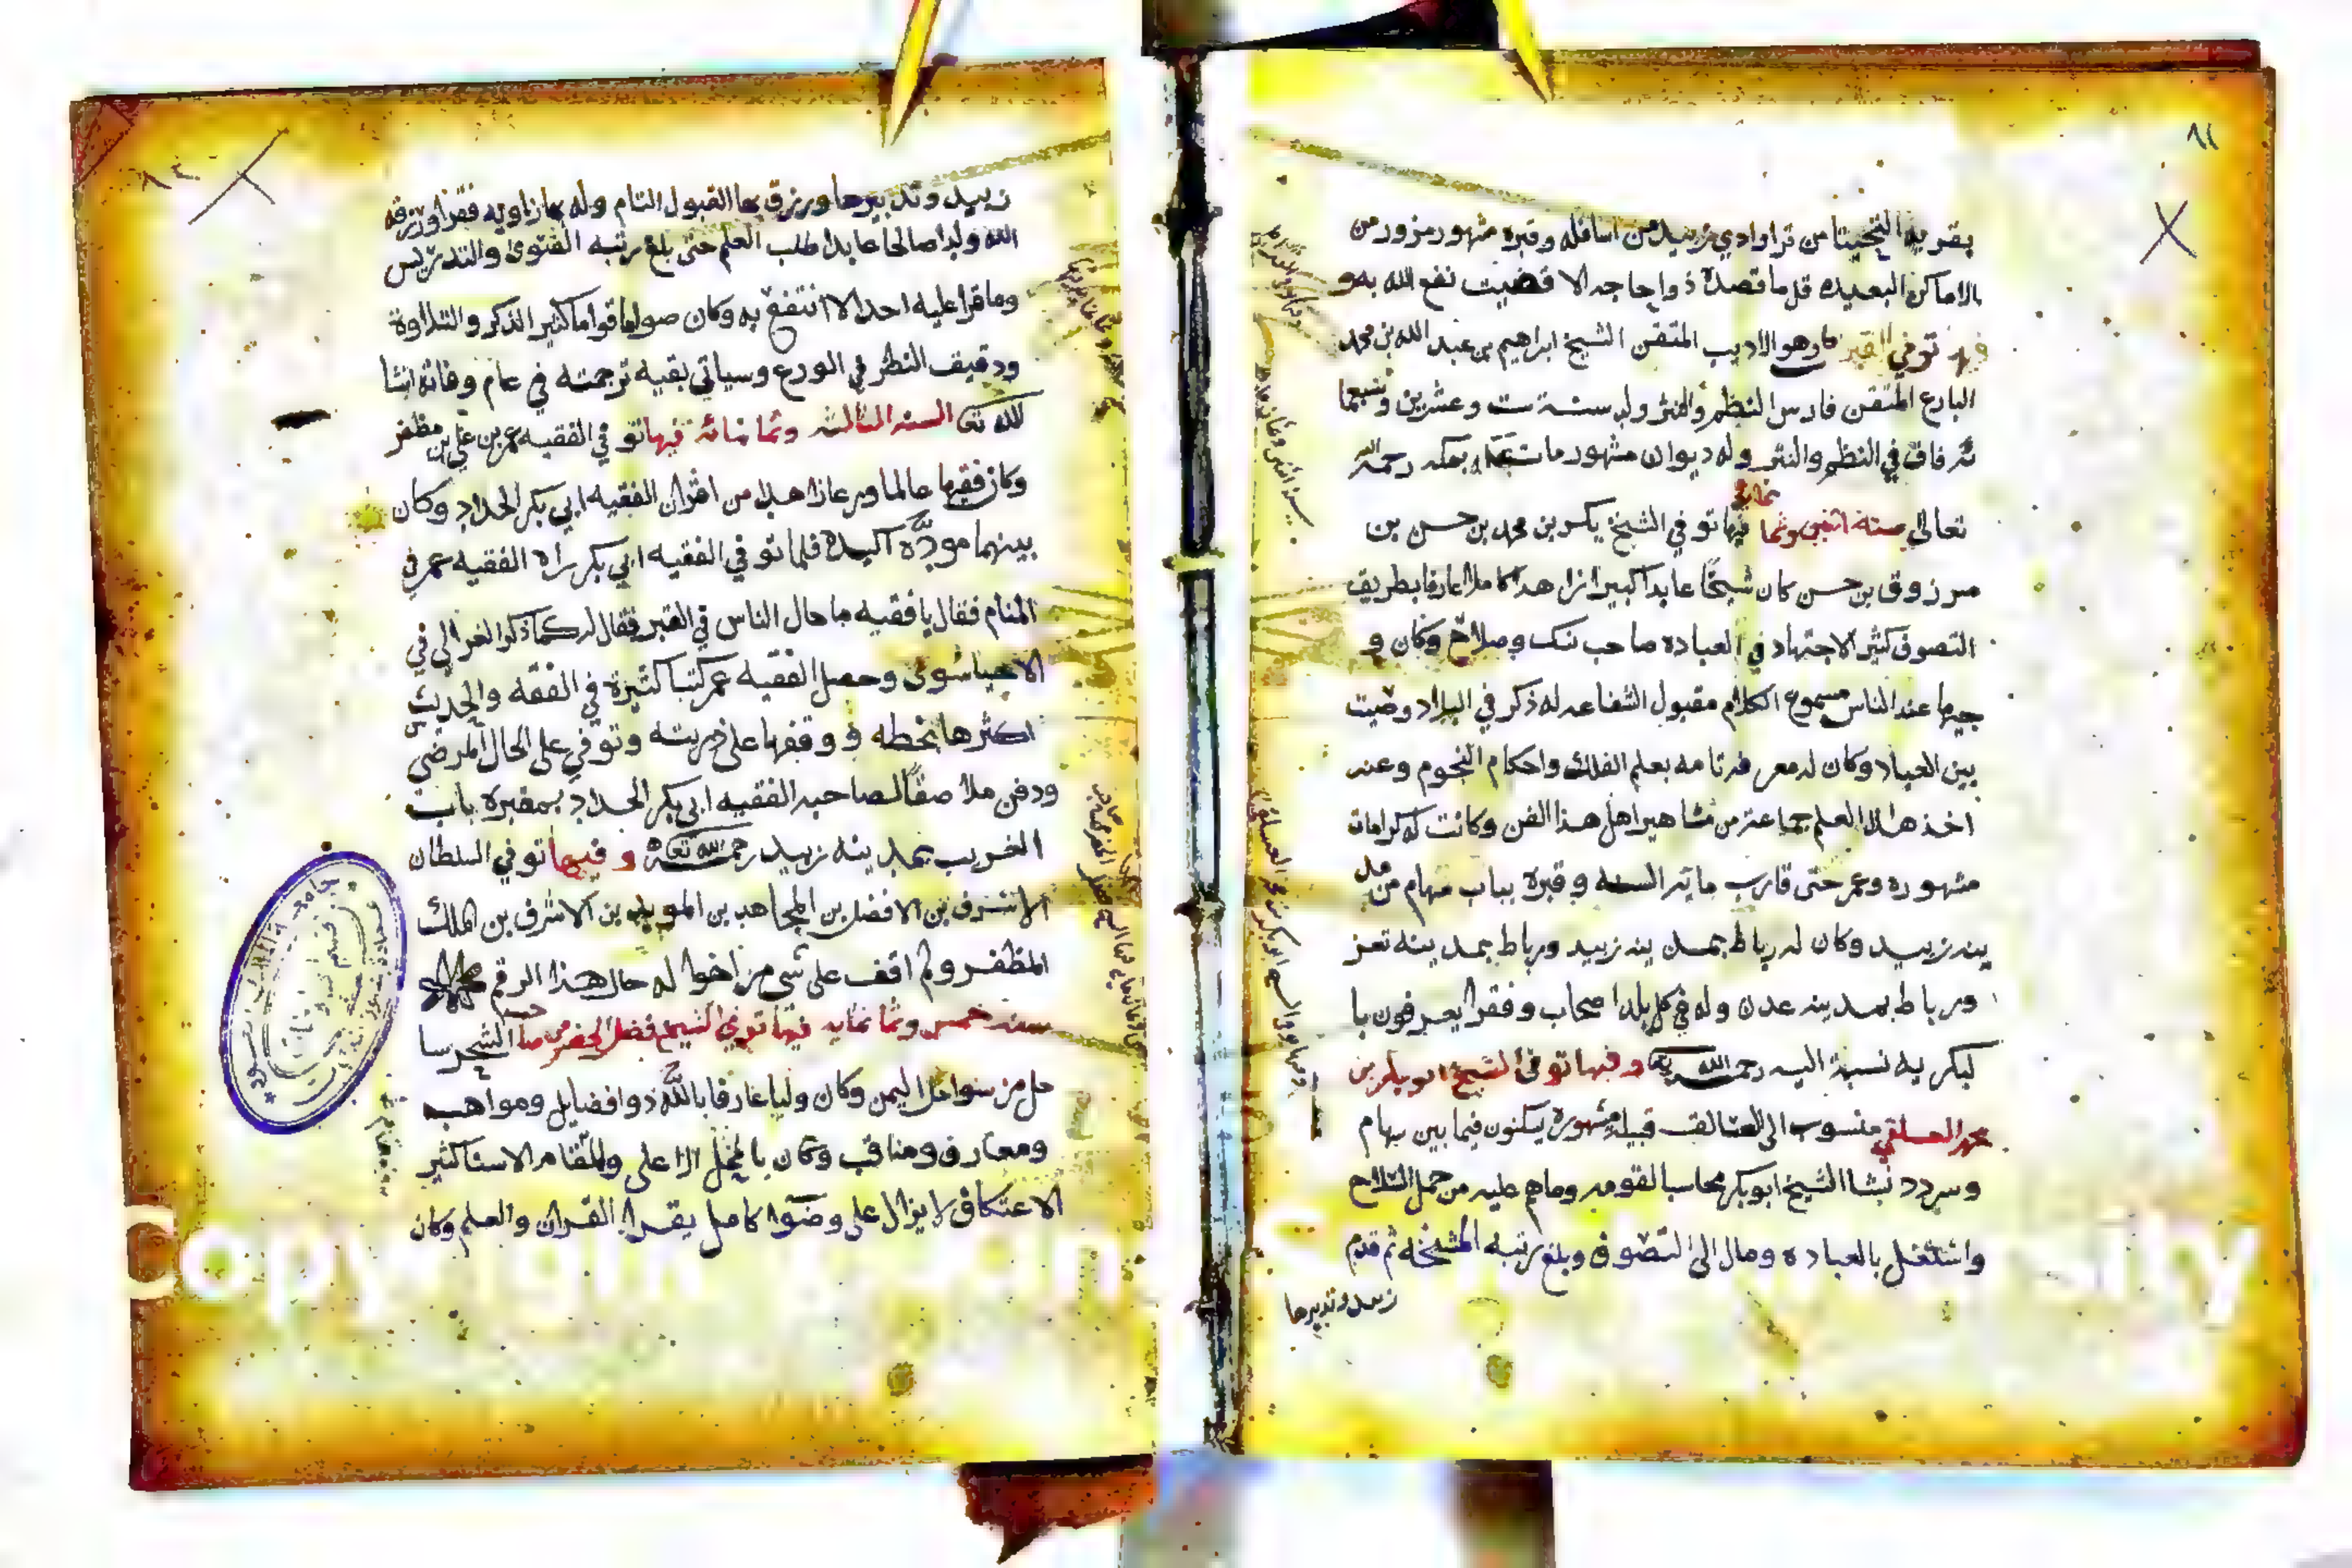 بقرية التحيتا من قرا وادي زبيد من اسافله وقبره مشهور مزور من
الاماكن البعيده قل ما قصده ذوا حاجه الا قضيت نفع الله به و
فيها توفي الاديب المتقن الشيخ ابراهيم بن عبد الله بن محمد
البارع المتقن فارس النظم والنثر ولد سنة ست وعشرين وسبعما
ئة فاق في النظم والنثر وله ديوان مشهور مات بمكه رحمه الله
تعالى سنه اثنين وثما نمائه فيها توفي الشيخ بكر بن محمد بن حسن بن
مرزوق بن حسن كان شيخا عابدا كبيرا زاهدا كاملا عارفا بطريق
التصوف كثير الاجتهاد في العباده صاحب نسك وصلاح وكان و
جيها عند الناس مسموع الكلام مقبول الشفاعه له ذكر في البلاد وصيت
بين العباد وكان له معرفة تامه بعلم الفلك واحكام النجوم وعنه
اخذ هذا العلم جماعة من مشاهير اهل هذا الفن وكانت له كرامات
مشهوره وعمر حتى قارب ماية السنه وقبره بباب سهام من مد
ينه زبيد وكان له رباط بمدينه زبيد ورباط بمدينه تعز
ورباط بمدينه عدن وله في كل بلد اصحاب وفقرا يعرفون با
لبكريه نسبة اليه رحمه الله تعا وفيها توفي الشيخ ابوبكر بن
محمد العسلقي منسوب الى العسالق قبيلة مشهورة يسكنون فيما بين سهام
وسردد نشا الشيخ ابوبكر مجانبا لقومه وماهم عليه من حمل السلاح
واشتغل بالعباده ومال الى التصوف وبلغ رتبه المشيخه ثم قدم
زبيد وتديرها
زبيد وتديرها ورزق بها القبول التام وله بها زاويه فقرا ورزقه
الله ولدا صالحا عابدا طلب العلم حتى بلغ رتبه الفتوى والتدريس
وما قرا عليه احد الا انتفع به وكان صواما قواما كثير الذكر والتلاوة
ودقيق النظر في الورع وسياتي بقيه ترجمته في عام وفاته انشا
الله تعا السنه الثالثه وثمانمائه فيها توفي الفقيه عمر بن علي بن مظفر
وكان فقيها عالما ورعا زاهدا من اقران الفقيه ابي بكر الحداد وكان
بينهما مودة اكيدة فلما توفي الفقيه ابي بكر راه الفقيه عمر في
المنام فقال يا فقيه ما حال الناس في القبر فقال له كما ذكر الغزالي في
الاحيا سوى وحصل الفقيه عمر كتبا كثيرة في الفقه والحديث
اكثرها بخطه و وقفها على ذريته وتوفي على الحال المرضي
ودفن ملاصقا لصاحبه الفقيه ابي بكر الحداد بمقبره باب
القريب بمدينه زبيد رحمه الله تعا وفيها توفي السلطان
الاشرف بن الافضل بن المجاهد بن المويد بن الاشرف بن الملك
المظفر ولم اقف على شي من اخوا له حال هذا الرقم
سنه خمس وثما نمايه فيها توفي الشيخ فضل الحضرمي صاحب الشحر سا
حل من سواحل اليمن وكان وليا عارفا بالله ذوا فضايل ومواهب
ومعارف ومناقب وكان بالمحل الاعلى والمقام الاسنا كثير
الاعتكاف لا يزال على وضوا كامل يقرا القران والعلم وكان